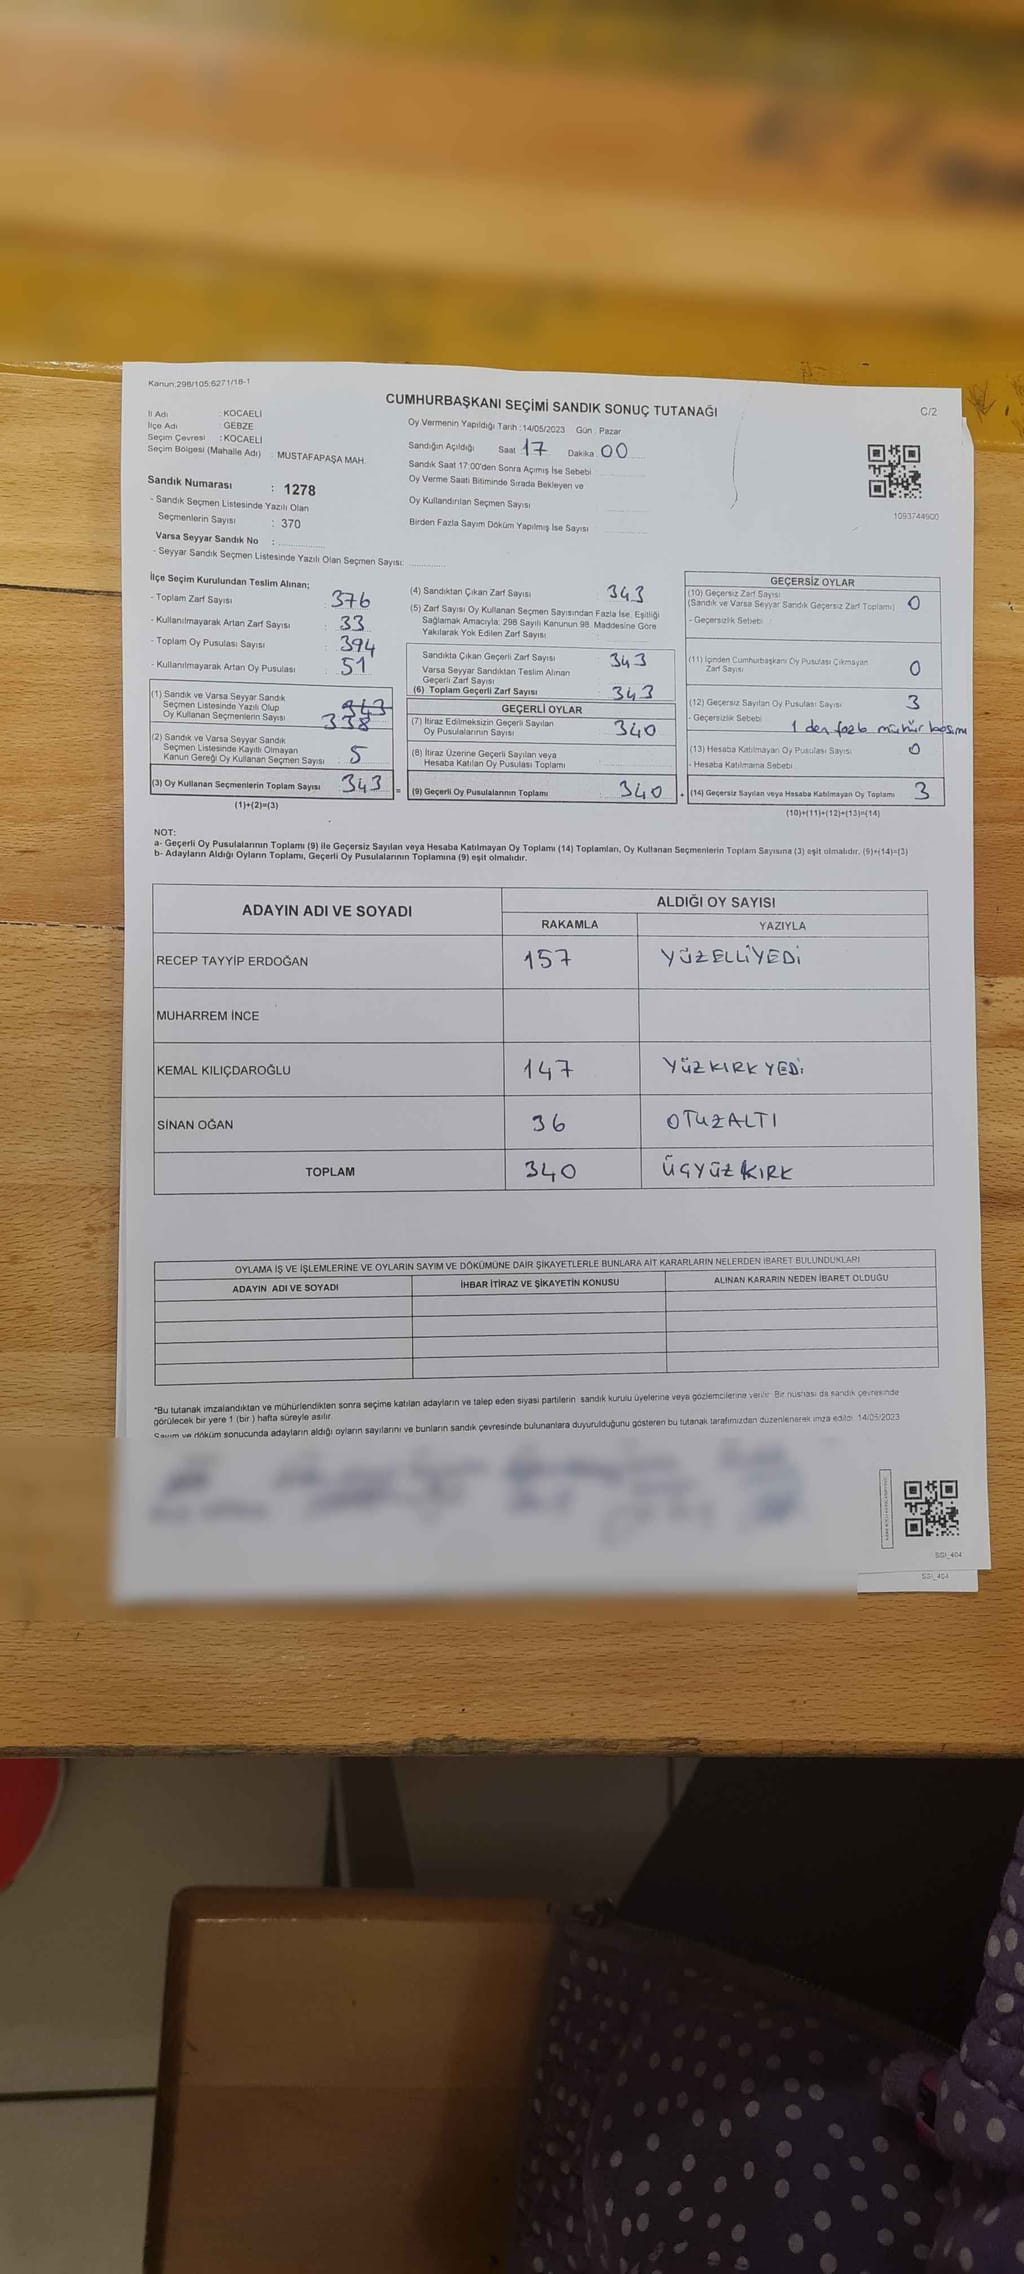 Kanun:298/105;6271/18-1
CUMHURBAŞKANI SEÇİMİ SANDIK SONUÇ TUTANAĞI
C/2
İl Adı : KOCAELİ
İlçe Adı : GEBZE
Seçim Çevresi : KOCAELİ
Seçim Bölgesi (Mahalle Adı) : MUSTAFAPAŞA MAH.
Sandık Numarası : 1278
- Sandık Seçmen Listesinde Yazılı Olan
Seçmenlerin Sayısı : 370
Varsa Seyyar Sandık No :
- Seyyar Sandık Seçmen Listesinde Yazılı Olan Seçmen Sayısı:
Oy Vermenin Yapıldığı Tarih :14/05/2023 Gün : Pazar
Sandığın Açıldığı Saat 17 Dakika 00
Sandık Saat 17:00'den Sonra Açımış İse Sebebi
Oy Verme Saati Bitiminde Sırada Bekleyen ve
Oy Kullandırılan Seçmen Sayısı
Birden Fazla Sayım Döküm Yapılmış İse Sayısı
1093744900
İlçe Seçim Kurulundan Teslim Alınan;
- Toplam Zarf Sayısı : 376
- Kullanılmayarak Artan Zarf Sayısı : 33
- Toplam Oy Pusulası Sayısı : 394
- Kullanılmayarak Artan Oy Pusulası : 51
(1) Sandık ve Varsa Seyyar Sandık
Seçmen Listesinde Yazılı Olup 343
Oy Kullanan Seçmenlerin Sayısı 338
(2) Sandık ve Varsa Seyyar Sandık
Seçmen Listesinde Kayıtlı Olmayan
Kanun Gereği Oy Kullanan Seçmen Sayısı : 5
(3) Oy Kullanan Seçmenlerin Toplam Sayısı : 343
(1)+(2)=(3)
(4) Sandıktan Çıkan Zarf Sayısı : 343
(5) Zarf Sayısı Oy Kullanan Seçmen Sayısından Fazla İse, Eşitliği
Sağlamak Amacıyla; 298 Sayılı Kanunun 98. Maddesine Göre
Yakılarak Yok Edilen Zarf Sayısı
Sandıkta Çıkan Geçerli Zarf Sayısı : 343
Varsa Seyyar Sandıktan Teslim Alınan
Geçerli Zarf Sayısı
(6) Toplam Geçerli Zarf Sayısı : 343
GEÇERLİ OYLAR
(7) İtiraz Edilmeksizin Geçerli Sayılan
Oy Pusulalarının Sayısı : 340
(8) İtiraz Üzerine Geçerli Sayılan veya
Hesaba Katılan Oy Pusulası Toplamı
(9) Geçerli Oy Pusulalarının Toplamı : 340
GEÇERSİZ OYLAR
(10) Geçersiz Zarf Sayısı
(Sandık ve Varsa Seyyar Sandık Geçersiz Zarf Toplamı) : 0
- Geçersizlik Sebebi
(11) İçinden Cumhurbaşkanı Oy Pusulası Çıkmayan
Zarf Sayısı : 0
(12) Geçersiz Sayılan Oy Pusulası Sayısı : 3
- Geçersizlik Sebebi 1 den fazla mühür basımı
(13) Hesaba Katılmayan Oy Pusulası Sayısı : 0
- Hesaba Katılmama Sebebi
(14) Geçersiz Sayılan veya Hesaba Katılmayan Oy Toplamı 3
(10)+(11)+(12)+(13)=(14)
NOT:
a- Geçerli Oy Pusulalarının Toplamı (9) ile Geçersiz Sayılan veya Hesaba Katılmayan Oy Toplamı (14) Toplamları, Oy Kullanan Seçmenlerin Toplam Sayısına (3) eşit olmalıdır. (9)+(14)=(3)
b- Adayların Aldığı Oyların Toplamı, Geçerli Oy Pusulalarının Toplamına (9) eşit olmalıdır.
ADAYIN ADI VE SOYADI
ALDIĞI OY SAYISI
RAKAMLA YAZIYLA
RECEP TAYYİP ERDOĞAN 157 YÜZELLİYEDİ
MUHARREM İNCE
KEMAL KILIÇDAROĞLU 147 YÜZKIRKYEDİ
SİNAN OĞAN 36 OTUZALTI
TOPLAM 340 ÜÇYÜZKIRK
OYLAMA İŞ VE İŞLEMLERİNE VE OYLARIN SAYIM VE DÖKÜMÜNE DAİR ŞİKAYETLERLE BUNLARA AİT KARARLARIN NELERDEN İBARET BULUNDUKLARI
ADAYIN ADI VE SOYADI İHBAR İTİRAZ VE ŞİKAYETİN KONUSU ALINAN KARARIN NEDEN İBARET OLDUĞU
*Bu tutanak imzalandıktan ve mühürlendikten sonra seçime katılan adayların ve talep eden siyasi partilerin sandık kurulu üyelerine veya gözlemcilerine verilir. Bir nushası da sandık çevresinde
görülecek bir yere 1 (bir ) hafta süreyle asılır.
Sayım ve döküm sonucunda adayların aldığı oyların sayılarını ve bunların sandık çevresinde bulunanlara duyurulduğunu gösteren bu tutanak tarafımızdan düzenlenerek imza edildi. 14/05/2023
SSI_404
SSI_404